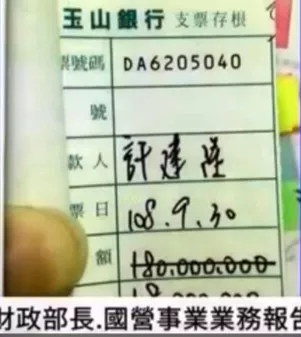 玉山銀行 支票存根
票號碼 DA6205040
號
款人 許建隆
票日 108.9.30
額 180.000.000
財政部長.國營事業業務報告